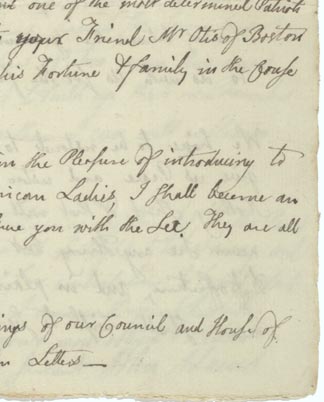 one of the most determined Patriots
your Friend Mr Otis of Boston
his Fortune & family in the Couse
the Pleasure of introducing to
rican Ladies, I shall become an
you with the Sex. They are all
ings of our Council and House of
Letters—